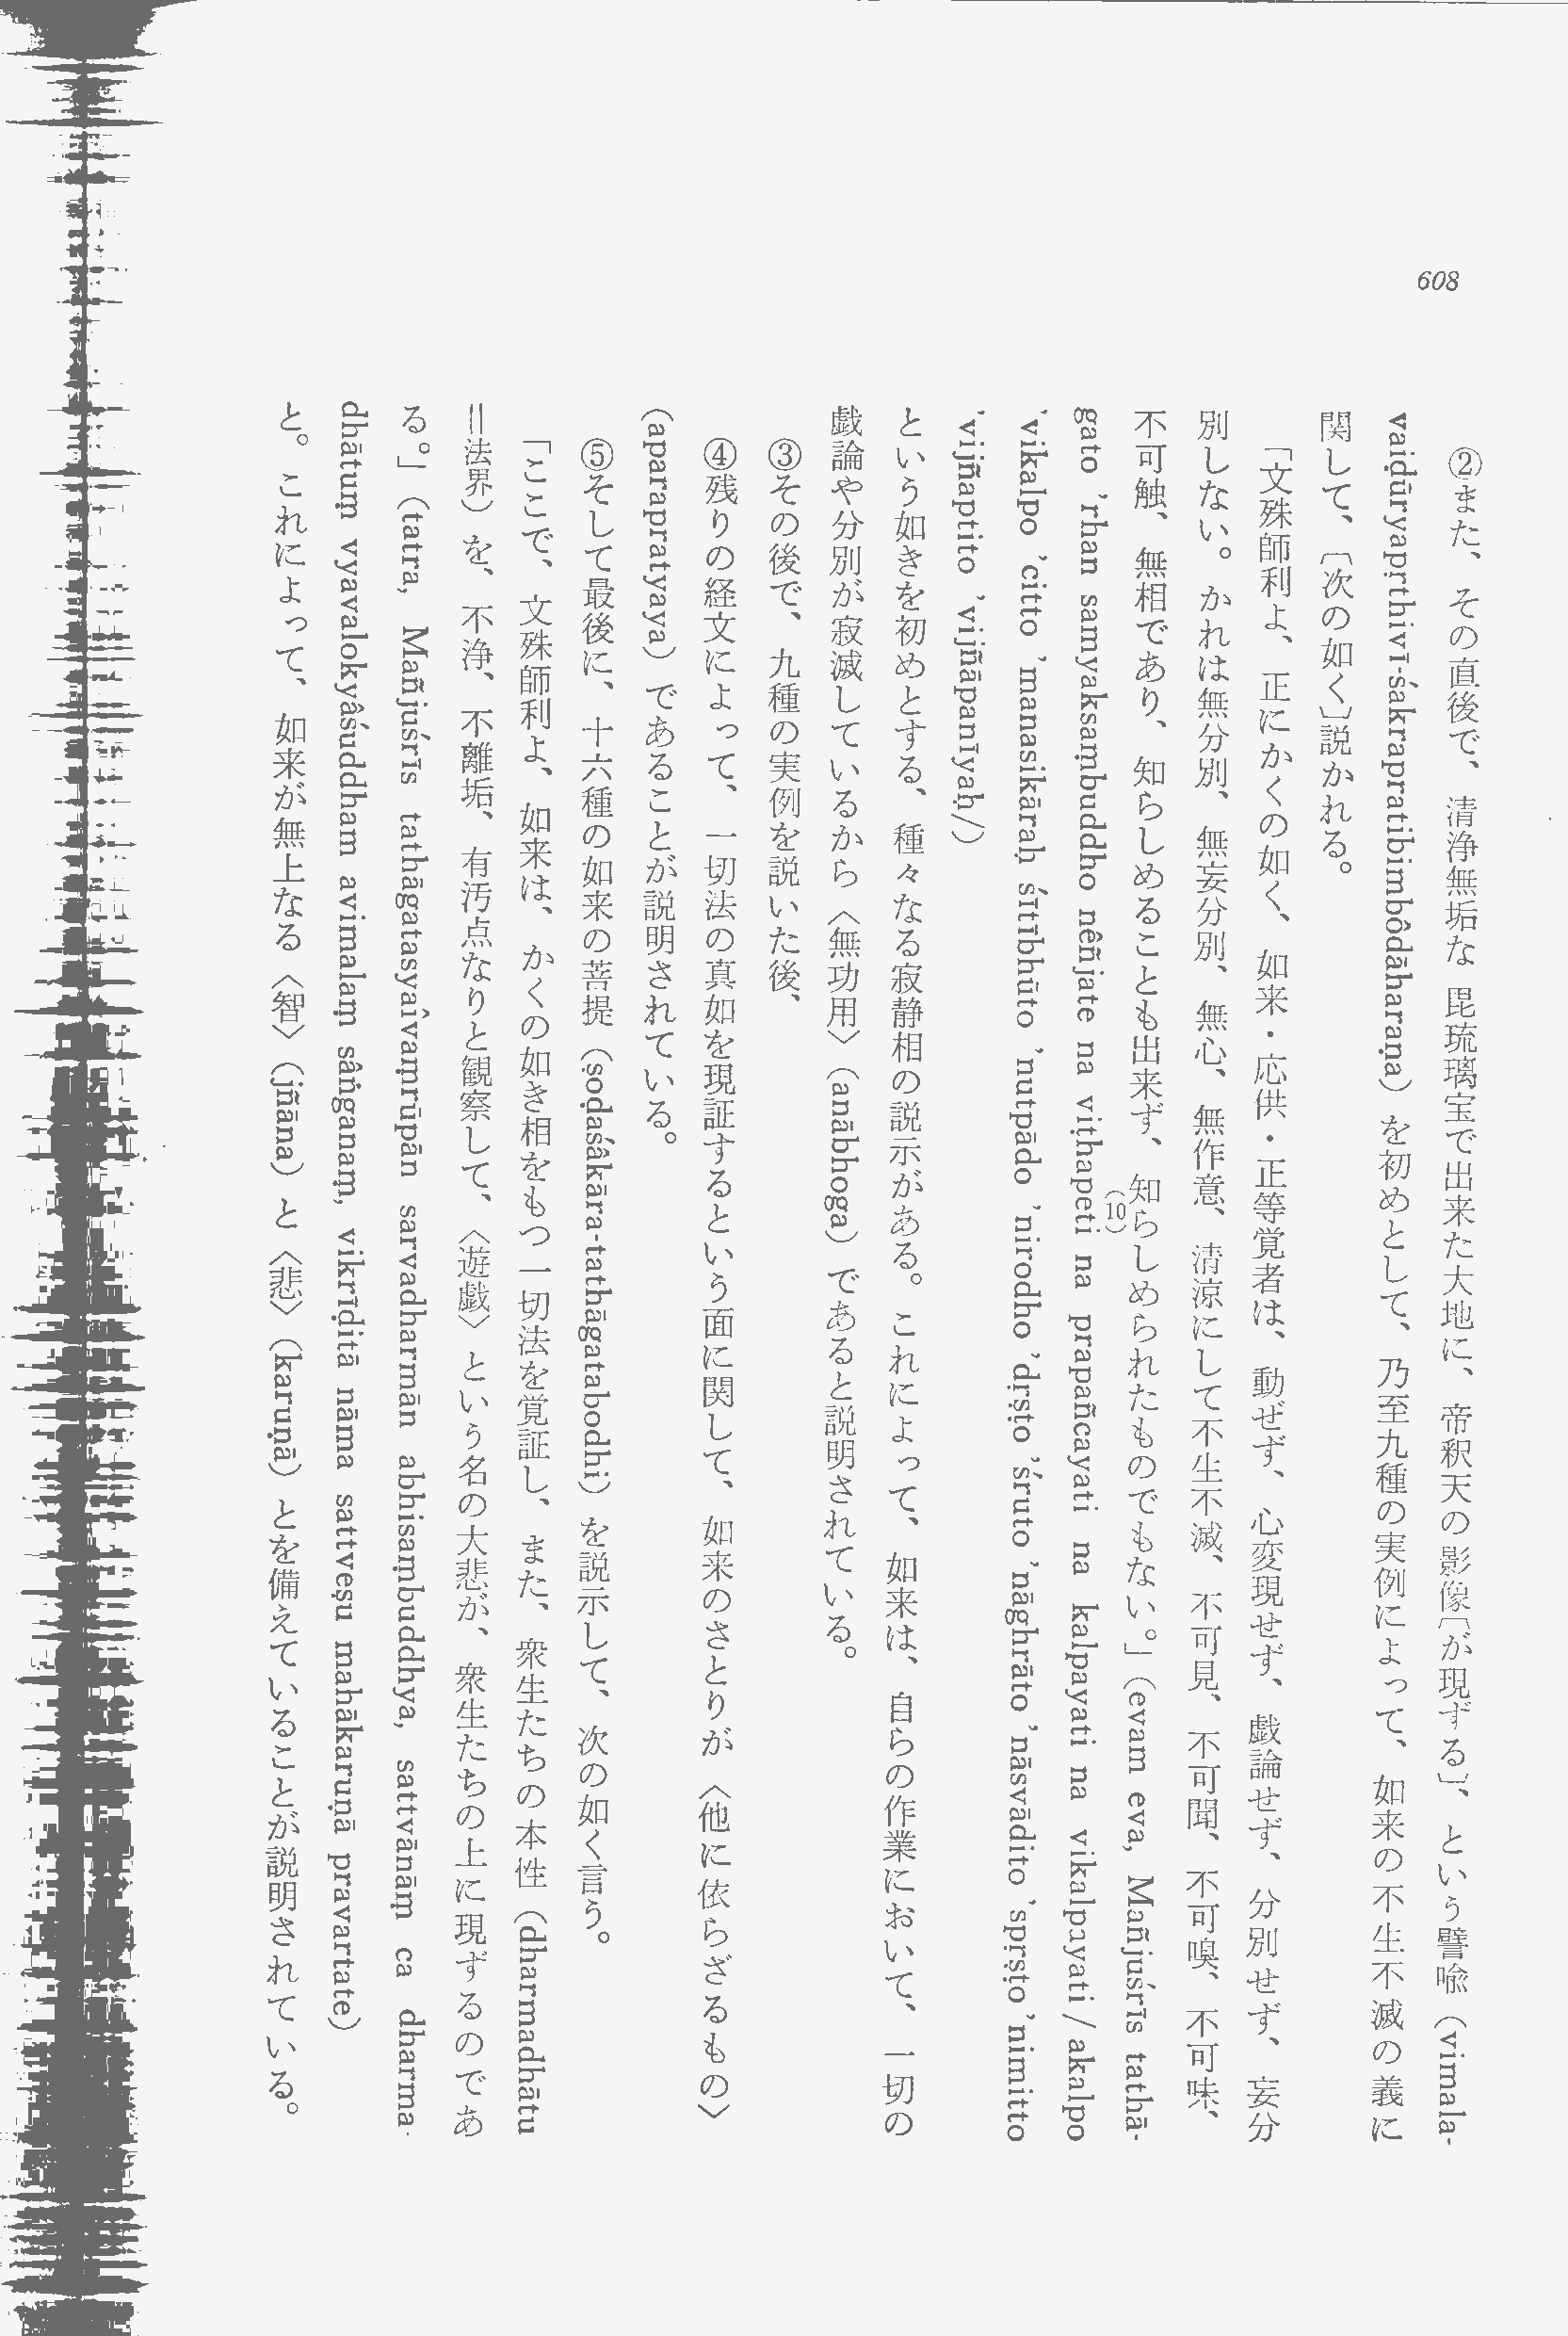 608
②また、その直後で、清浄無垢な毘琉璃宝で出来た大地に、帝釈天の影像〔が現ずる〕、という譬喩（vimala-
vaiḍūryapṛthivī-śakrapratibimbôdāharaṇa）を初めとして、乃至九種の実例によって、如来の不生不滅の義に
関して、〔次の如く〕説かれる。
「文殊師利よ、正にかくの如く、如来・応供・正等覚者は、動ぜず、心変現せず、戯論せず、分別せず、妄分
別しない。かれは無分別、無妄分別、無心、無作意、清涼にして不生不滅、不可見、不可聞、不可嗅、不可味、
不可触、無相であり、知らしめることも出来ず、知らしめられたものでもない。」（evam eva, Mañjuśrīs tathā-
(10)
gato ’rhan samyaksaṃbuddho nêñjate na viṭhapeti na prapañcayati na kalpayati na vikalpayati / akalpo
’vikalpo ’citto ’manasikāraḥ śītībhūto ’nutpādo ’nirodho ’dṛṣṭo ’śruto ’nāghrāto ’nāsvādito ’spṛṣṭo ’nimitto
’vijñaptito ’vijñāpanīyaḥ/）
という如きを初めとする、種々なる寂静相の説示がある。これによって、如来は、自らの作業において、一切の
戯論や分別が寂滅しているから〈無功用〉（anābhoga）であると説明されている。
③その後で、九種の実例を説いた後、
④残りの経文によって、一切法の真如を現証するという面に関して、如来のさとりが〈他に依らざるもの〉
（aparapratyaya）であることが説明されている。
⑤そして最後に、十六種の如来の菩提（ṣoḍaśâkāra-tathāgatabodhi）を説示して、次の如く言う。
「ここで、文殊師利よ、如来は、かくの如き相をもつ一切法を覚証し、また、衆生たちの本性（dharmadhātu
＝法界）を、不浄、不離垢、有汚点なりと観察して、〈遊戯〉という名の大悲が、衆生たちの上に現ずるのであ
る。」（tatra, Mañjuśrīs tathāgatasyaîvaṃrūpān sarvadharmān abhisaṃbuddhya, sattvānāṃ ca dharma-
dhātuṃ vyavalokyâśuddham avimalaṃ sâṅganaṃ, vikrīḍitā nāma sattveṣu mahākaruṇā pravartate）
と。これによって、如来が無上なる〈智〉（jñāna）と〈悲〉（karuṇā）とを備えていることが説明されている。